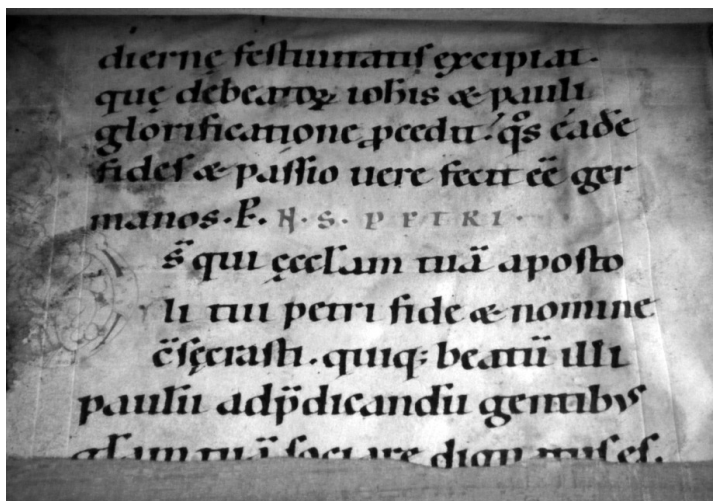 diernę festiuitatis excipiat.
quę de beatoꝝ ioh̄is & pauli
glorificatione ꝓcedit. q̊s eadē
fides & passio uere fecit eē̄ ger
manos. P. N. S. PETRI.
s̄ qui ęccl̄am tuā aposto
li tui petri fide & nomine
c̄sęcrasti. quiq; beatū illi
paulū ad p̄dicandū gentibus
gl̄am tuā sociare dign